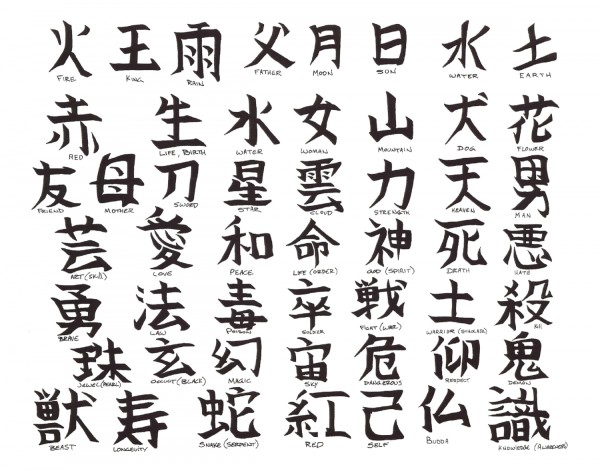 火 王 雨 父 月 日 水 土
FIRE KING RAIN FATHER MOON SUN WATER EARTH
赤 生 水 女 山 犬 花
RED LIFE, BIRTH WATER WOMAN MOUNTAIN DOG FLOWER
友 母 刀 星 雲 力 天 男
FRIEND MOTHER SWORD STAR CLOUD STRENGTH HEAVEN MAN
芸 愛 和 命 神 死 悪
ART (SKILL) LOVE PEACE LIFE (ORDER) GOD (SPIRIT) DEATH HATE
勇 法 毒 卒 戦 士 殺
BRAVE LAW POISON SOLDIER FIGHT (WAR) WARRIOR KILL
珠 玄 幻 宙 危 仰 鬼
JEWEL (PEARL) OCCULT (BLACK) MAGIC SKY DANGEROUS RESPECT DEMON
獣 寿 蛇 紅 己 仏 識
BEAST LONGEVITY SNAKE (SERPENT) RED SELF BUDDA KNOWLEDGE